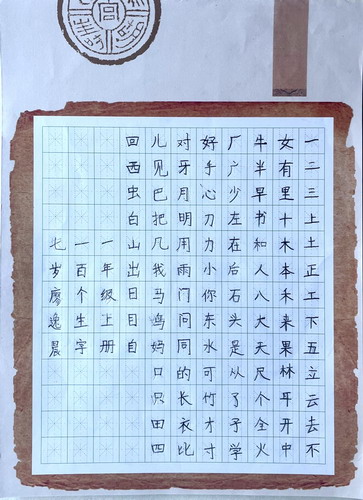 一二三上土正工下五立云去不
女有里十木本禾来果林耳开中
牛半早书和人八大天尺个全火
厂广少左在后石头是从了子学
好手心刀力小你东水可竹才寸
对牙月明用雨门问同的长衣比
儿见巴把几我马鸟妈口只田四
回西虫白山出日目自
一年级上册
一百个生字
七岁廖逸晨